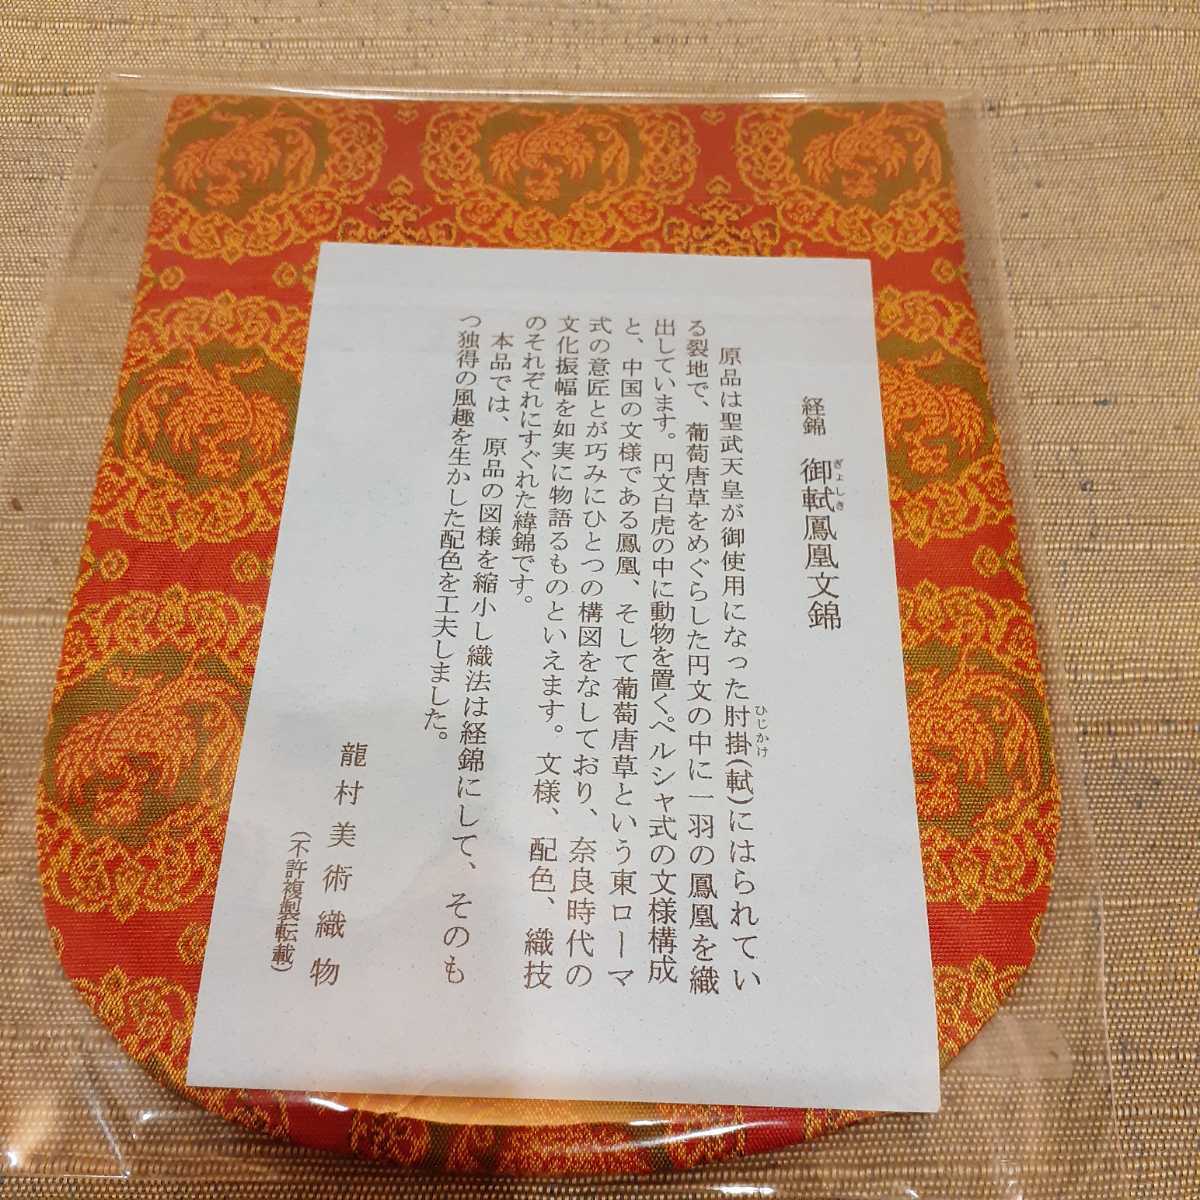 経錦　御軾鳳凰文錦
ぎょしき
原品は聖武天皇が御使用になった肘掛(軾)にはられてい
ひじかけ
る裂地で、葡萄唐草をめぐらした円文の中に一羽の鳳凰を織
出しています。円文白虎の中に動物を置くペルシャ式の文様構成
と、中国の文様である鳳凰、そして葡萄唐草という東ローマ
式の意匠とが巧みにひとつの構図をなしており、奈良時代の
文化振幅を如実に物語るものといえます。文様、配色、織技
のそれぞれにすぐれた緯錦です。
本品では、原品の図様を縮小し織法は経錦にして、そのも
つ独得の風趣を生かした配色を工夫しました。
龍村美術織物
(不許複製転載)